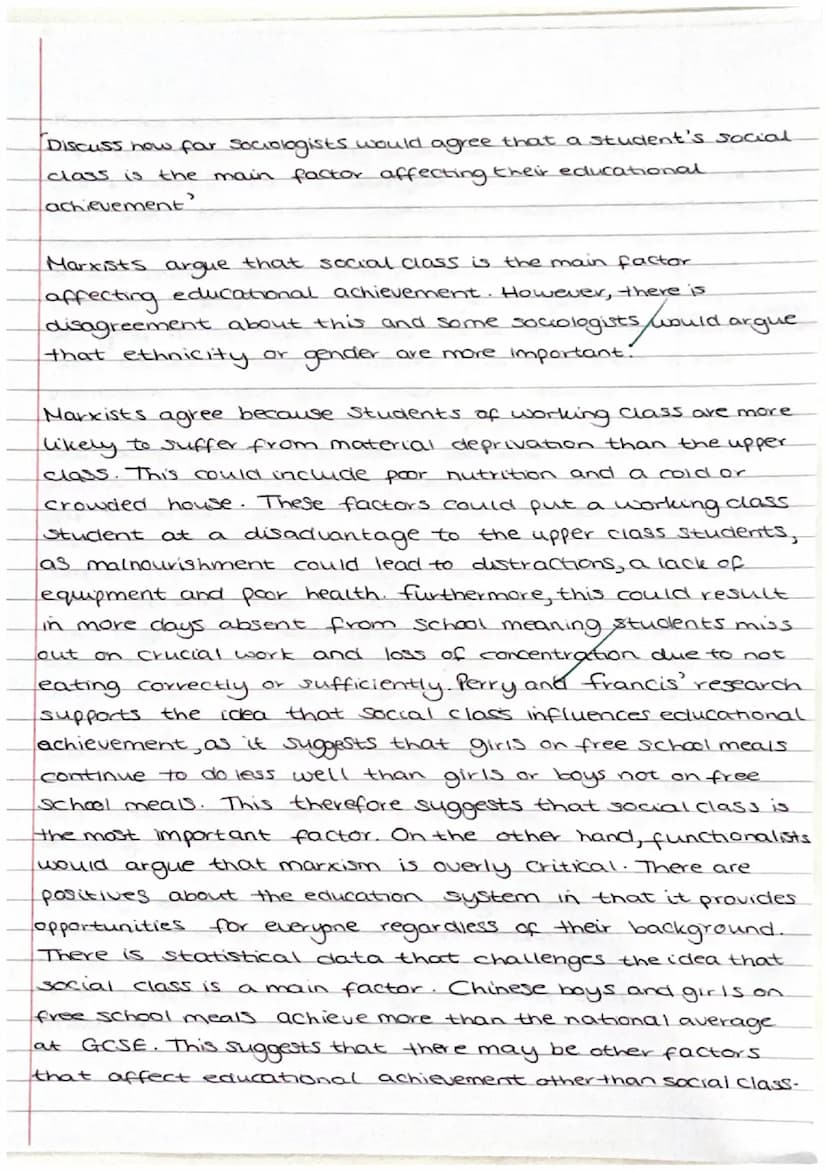 'Discuss how far sociologists would agree that a student's social
class is the main factor affecting their educational
achievement'
Marxists argue that social class is the main factor
affecting educational achievement. However, there is
disagreement about this and some sociologists would argue
that ethnicity or gender are more important.
Marxists agree because students of working class are more
likely to suffer from material deprivation than the upper
class. This could include poor nutrition and a cold or
crowded house. These factors could put a working class
student at a disadvantage to the upper class students,
as malnourishment could lead to distractions, a lack of
equipment and poor health. furthermore, this could result
in more days absent from school meaning students miss
out on crucial work and loss of concentration due to not
eating correctly or sufficiently. Perry and Francis' research
supports the idea that social class influences educational
achievement, as it suggests that girls on free school meals
continue to do less well than girls or boys not on free
school meals. This therefore suggests that social class is
the most important factor. On the other hand, functionalists
would argue that marxism is overly critical. There are
positives about the education system in that it provides
opportunities for everyone regardless of their background.
There is statistical data that challenges the idea that
social class is a main factor. Chinese boys and girls on
free school meals achieve more than the national average
at GCSE. This suggests that there may be other factors
that affect educational achievement other than social class.